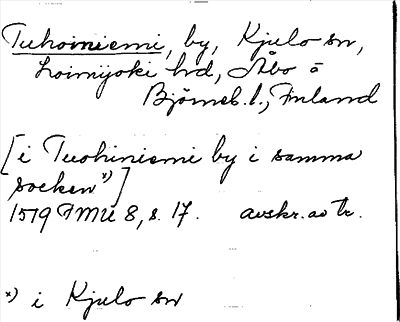 Tuhoiniemi, by, Kjulo sn,
Loimijoki hd, Åbo o
Björneb. l., Finland
[i Tuohiniemi by i samma
socken x)]
1579 FMU 8, s. 17. avskr. av Tr.
x) i Kjulo sn